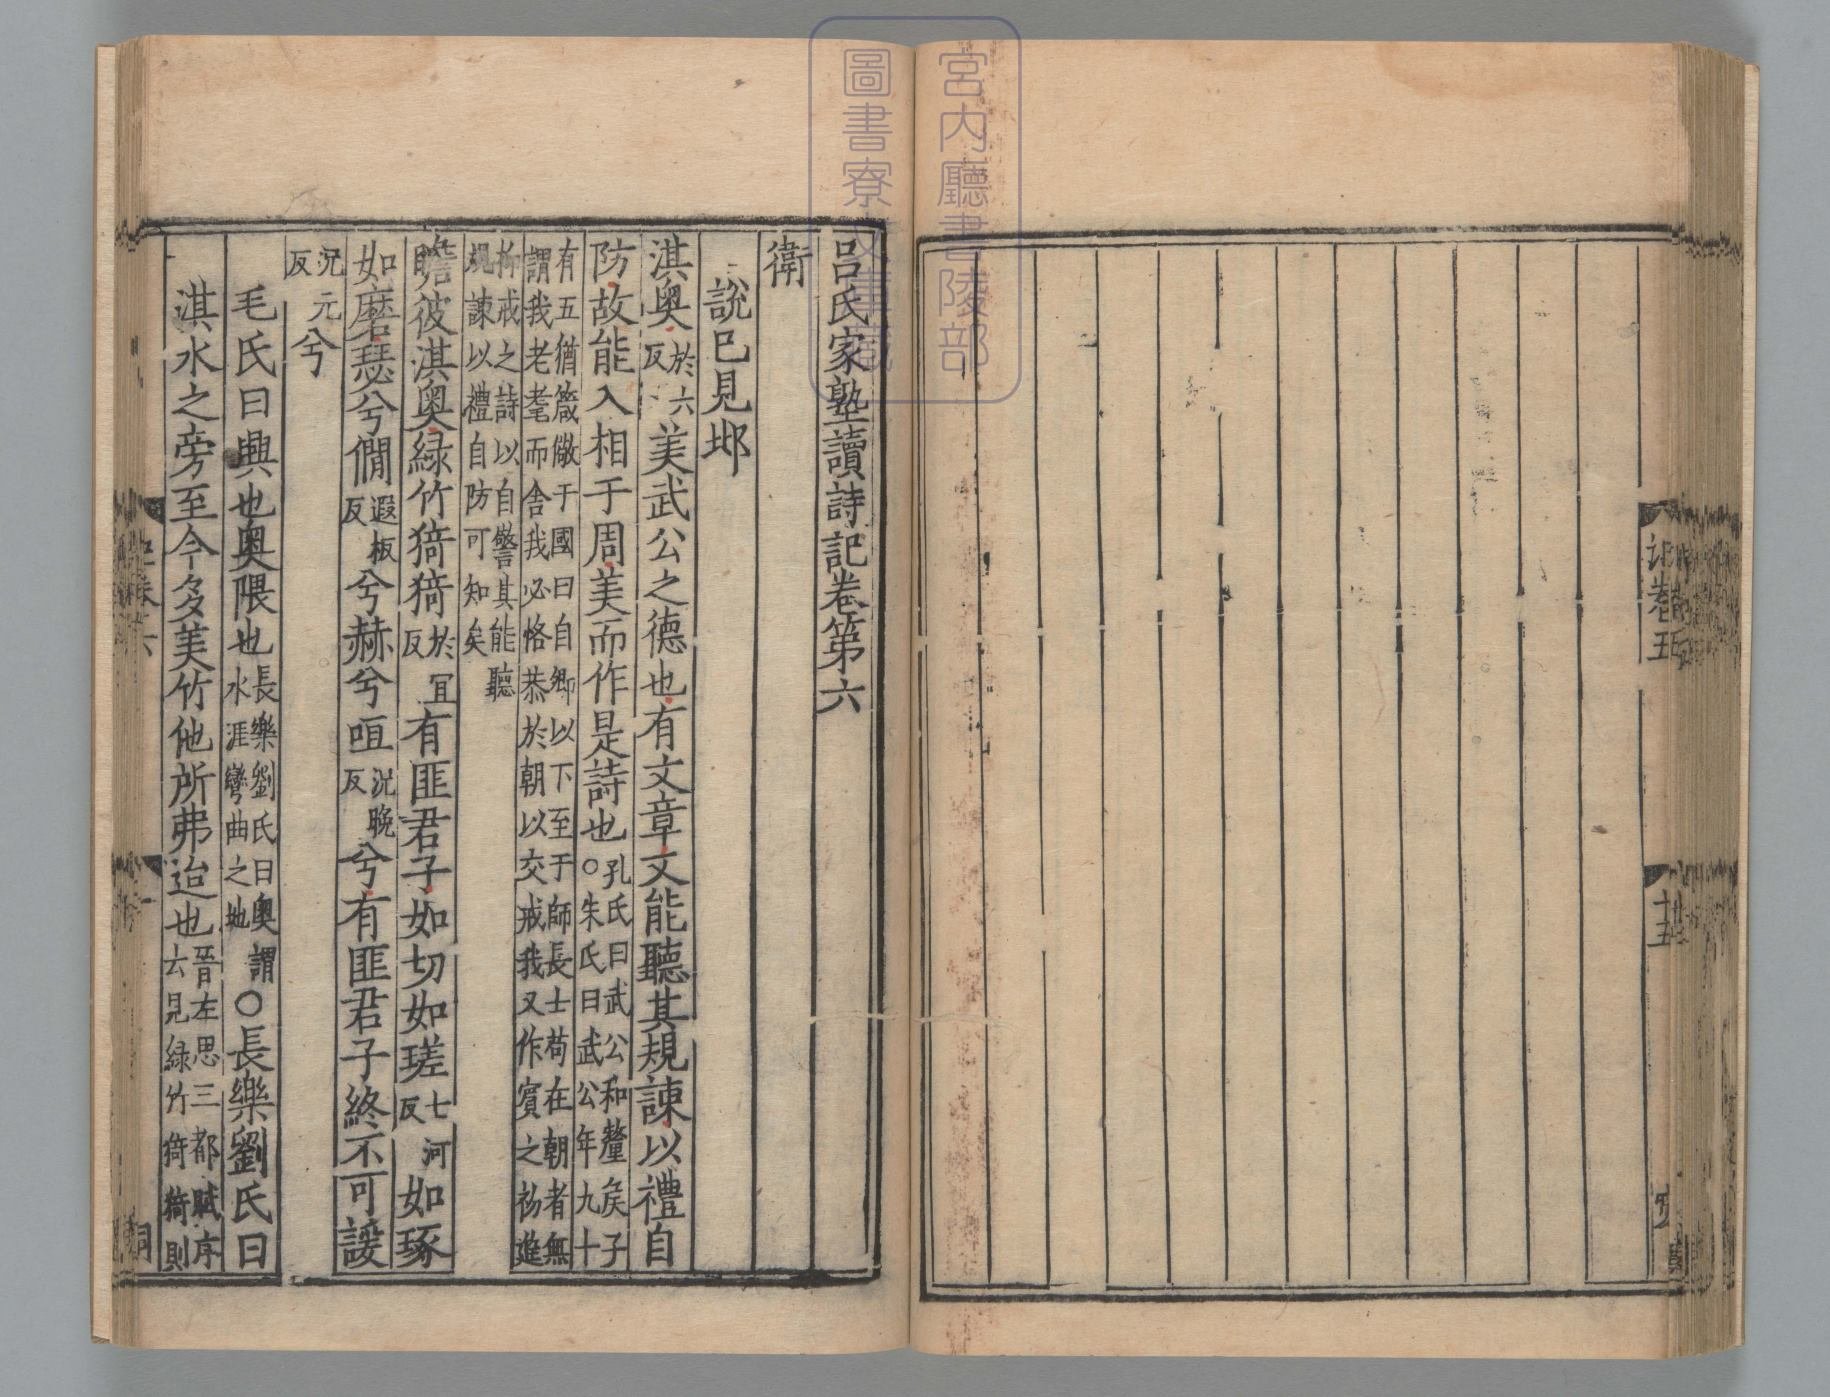 宮内廳書陵部
圖書寮文庫蔵
記卷五
呂氏家塾讀詩記卷第六
衛
說巳見邶
淇奥於六反美武公之德也有文章文能聽其規諫以禮自
防故能入相于周美而作是詩也孔氏曰武公和釐矦子○朱氏曰武公年九十
有五猶箴儆于國曰自卿以下至于師長士苟在朝者無謂我老耄而舍我必恪恭於朝以交戒我又作賓之初進
抑戒之詩以自警其能聽規諫以禮自防可知矣
瞻彼淇奥緑竹猗猗於冝反有匪君子如切如瑳七河反如琢
如磨瑟兮僩遐板反兮赫兮咺況晚反兮有匪君子終不可諼
況元反兮
毛氏曰興也奥隈也長樂劉氏曰奥謂水涯彎曲之地○長樂劉氏曰
淇水之旁至今多美竹他所弗迨也晉左思三都賦序云見緑竹猗猗則